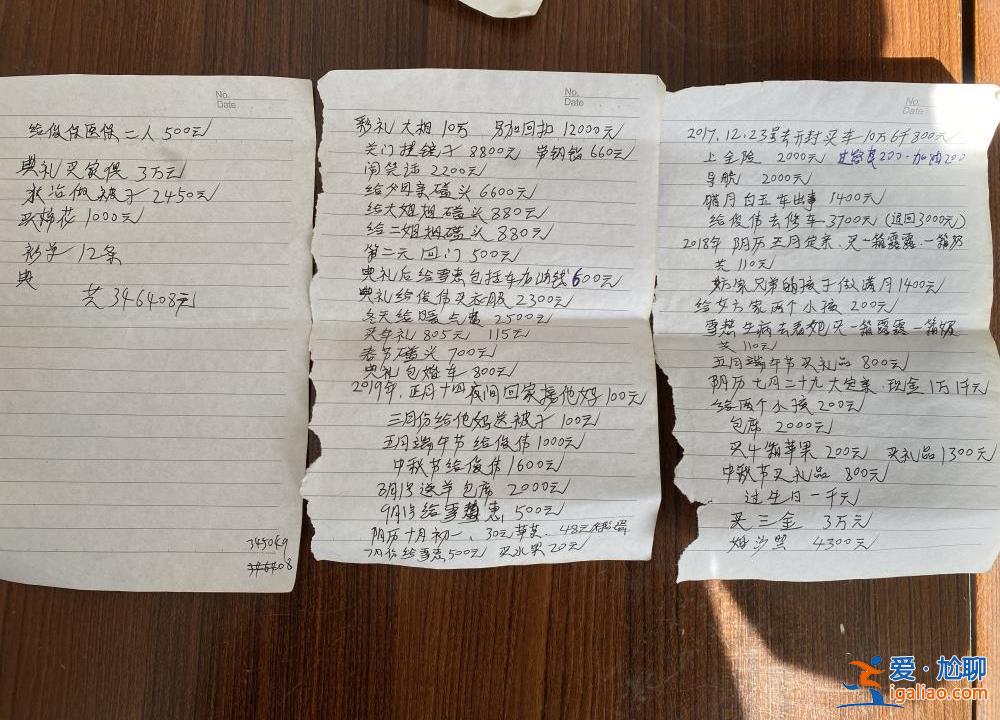 No.
Date
给俊伟医保二人500元
典礼买家俱3万元
做被子2450元
买棉花1000元
彩单12条
典
共346408元
345049
No.
Date
彩礼大相10万 另加回扣12000元
关门挂镜子8800元 带钥匙660元
闺凳证2200元
给父母亲磕头6600元
给大姐姐磕头880元
给二姐姐磕头880元
第二天回门500元
典礼后给雪惠包括车加油钱600元
典礼给俊伟买衣服2300元
冬天给暖气费2500元
买车礼805元 115元
春节磕头700元
典礼包婚车800元
2019年.正月十四夜间回家接他妈100元
三月份给他妈送被子100元
五月端午节给俊伟1000元
中秋节给俊伟1600元
8月15送羊包席2000元
9月15给雪慧惠500元
阴历十月初一、30元苹果.48元
7月份给雪惠500元 买水果20元
No.
Date
2017.12.23号去开封买车10万6仟800元
上全险2000元 过路费200.加油200
导航2000元
腊月白五车出事1400元
给俊伟去修车3700元(返回3000元)
2018年阴历五月定亲.买一箱露露.一箱奶
共110元
奶家兄弟的孩子做满月1400元
给女方家两个小孩200元
雪慧生病去看她买一箱露露一箱奶
共110元
五月端午节买礼品800元
阴历七月二十九大定亲.现金1万1仟元
给两个小孩200元
包席2000元
买4箱苹果200元 买礼品1300元
中秋节买礼品800元
过生日一千元
买三金3万元
婚沙照4300元
爱·尬聊
igaliao.com